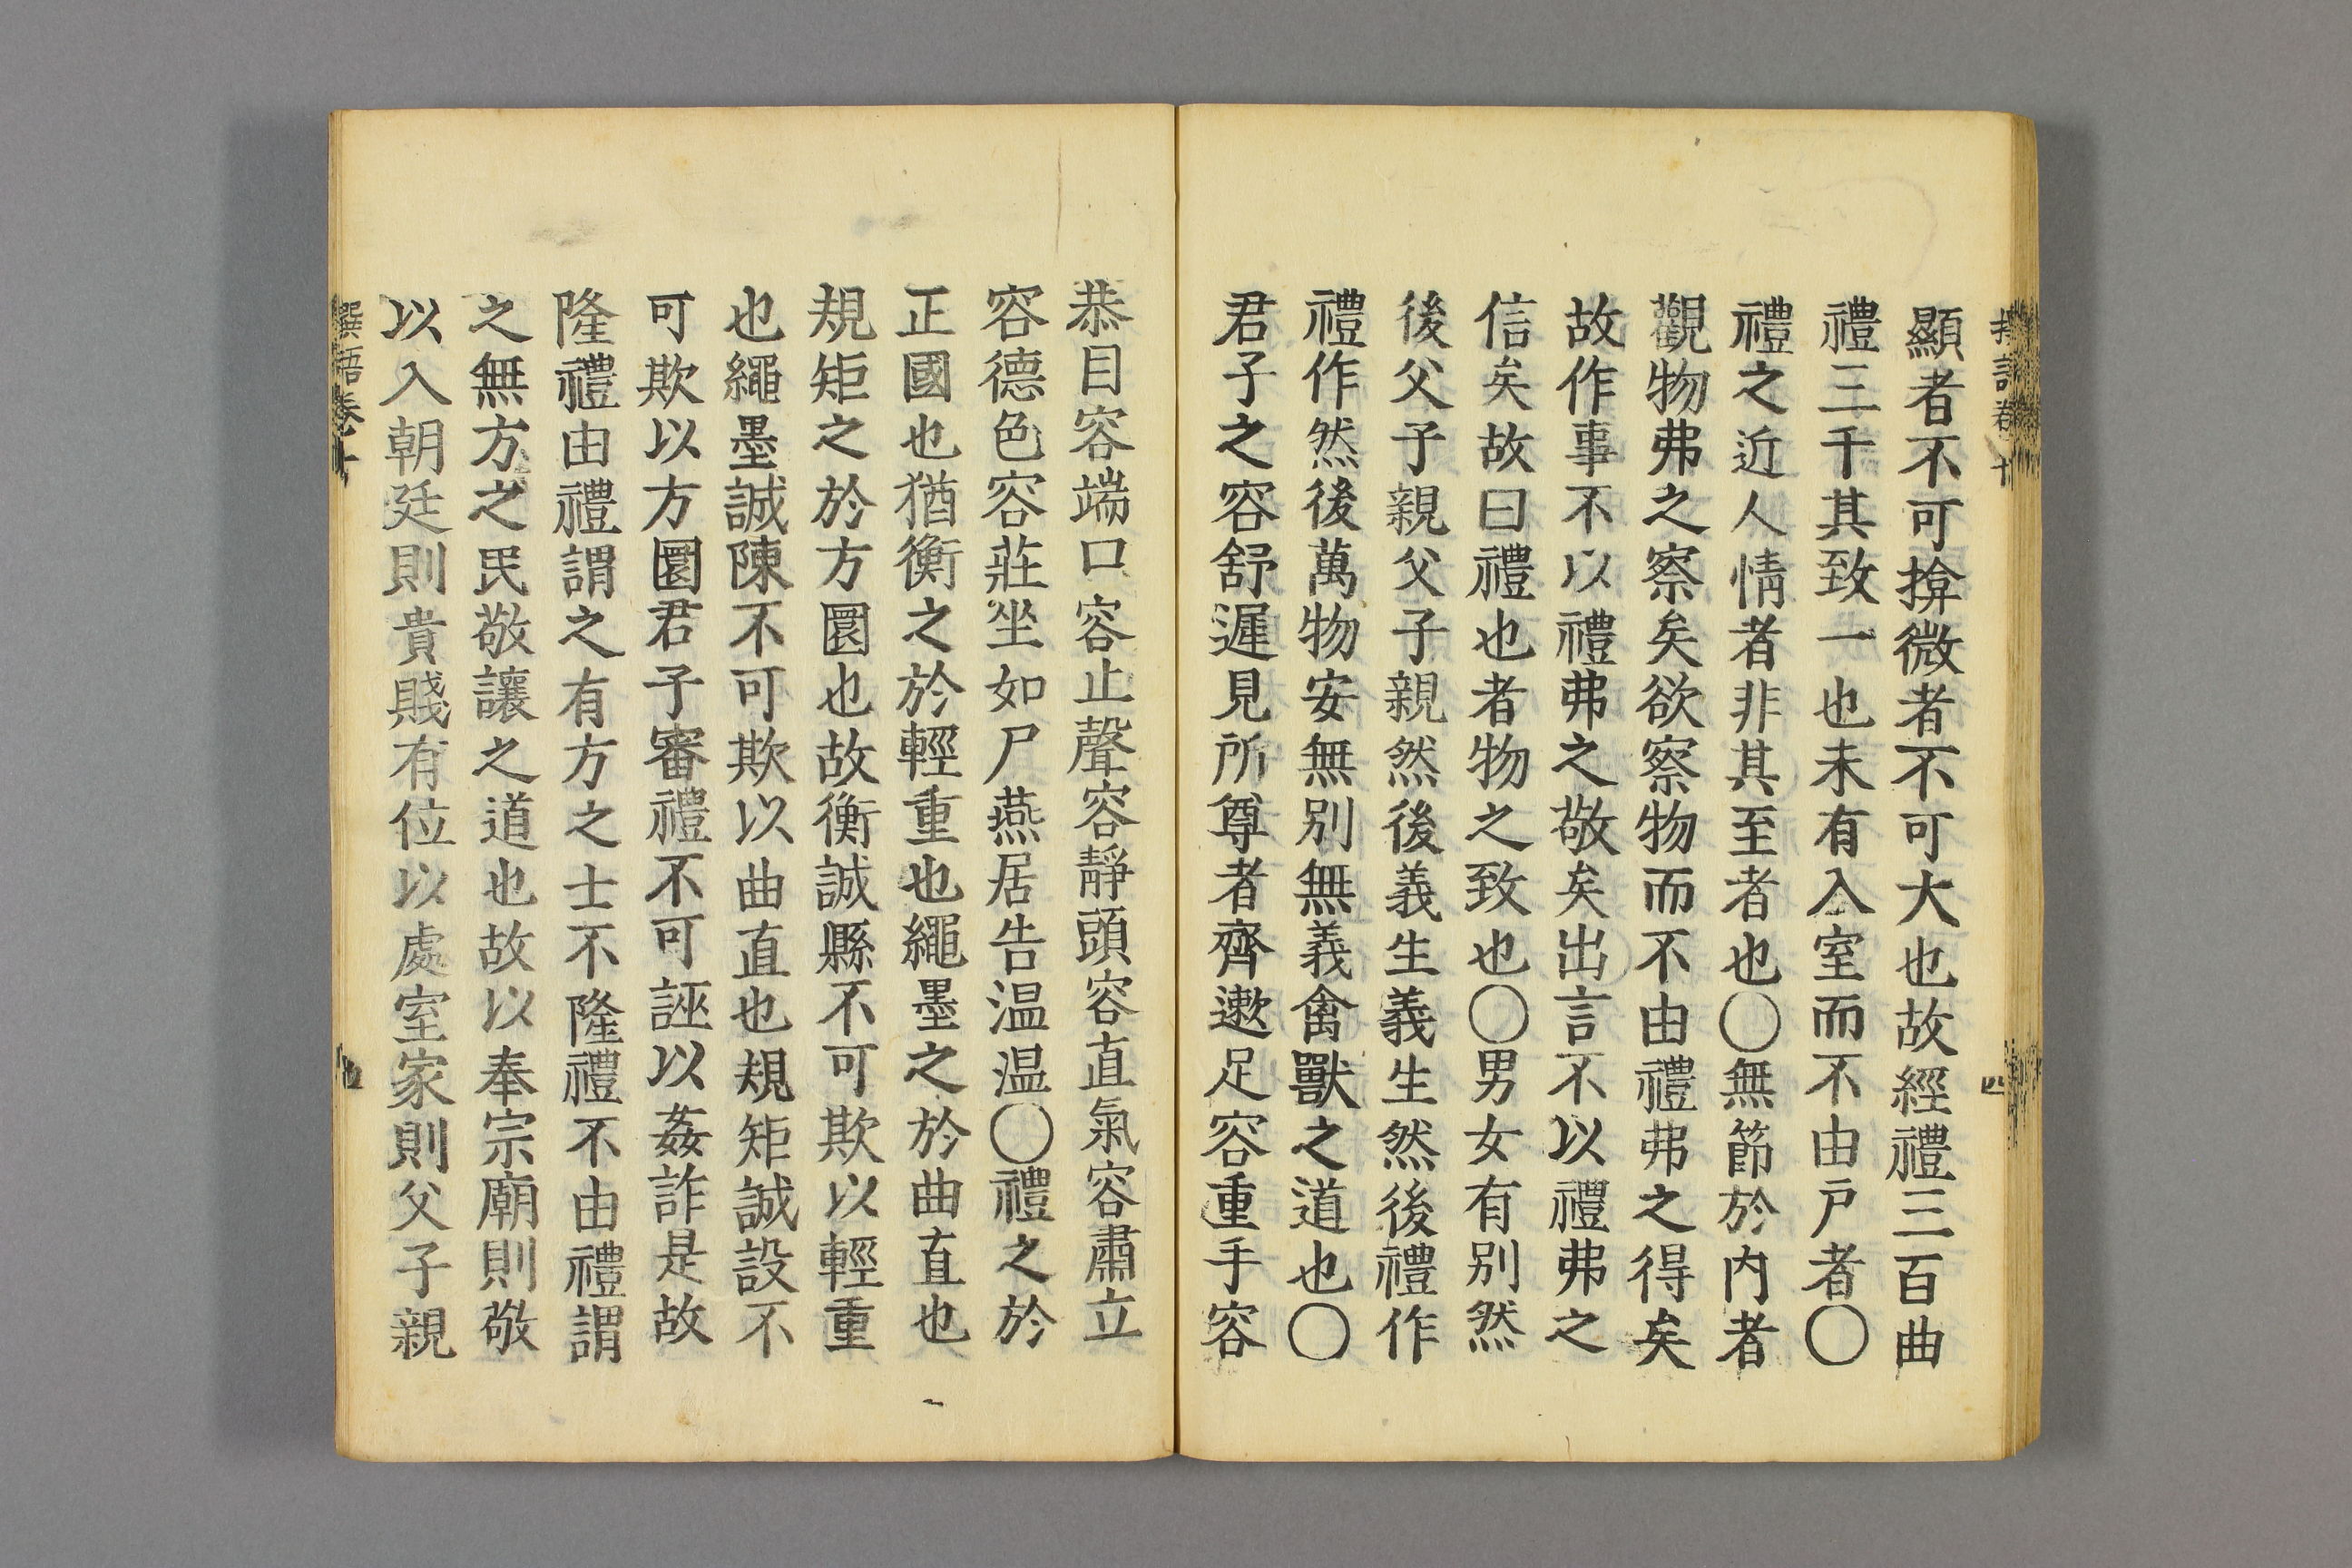 顯者不可揜微者不可大也故經禮三百曲
禮三千其致一也未有入室而不由戶者〇
禮之近人情者非其至者也〇無節於內者
觀物弗之察矣欲察物而不由禮弗之得矣
故作事不以禮弗之敬矣出言不以禮弗之
信矣故曰禮也者物之致也〇男女有別然
後父子親父子親然後義生義生然後禮作
禮作然後萬物安無別無義禽獸之道也〇
君子之容舒遲見所尊者齊遬足容重手容
恭目容端口容止聲容靜頭容直氣容肅立
容德色容莊坐如尸燕居告温温〇禮之於
正國也猶衡之於輕重也繩墨之於曲直也
規矩之於方圜也故衡誠縣不可欺以輕重
也繩墨誠陳不可欺以曲直也規矩誠設不
可欺以方圜君子審禮不可誣以姦詐是故
隆禮由禮謂之有方之士不隆禮不由禮謂
之無方之民敬讓之道也故以奉宗廟則敬
以入朝廷則貴賤有位以處室家則父子親